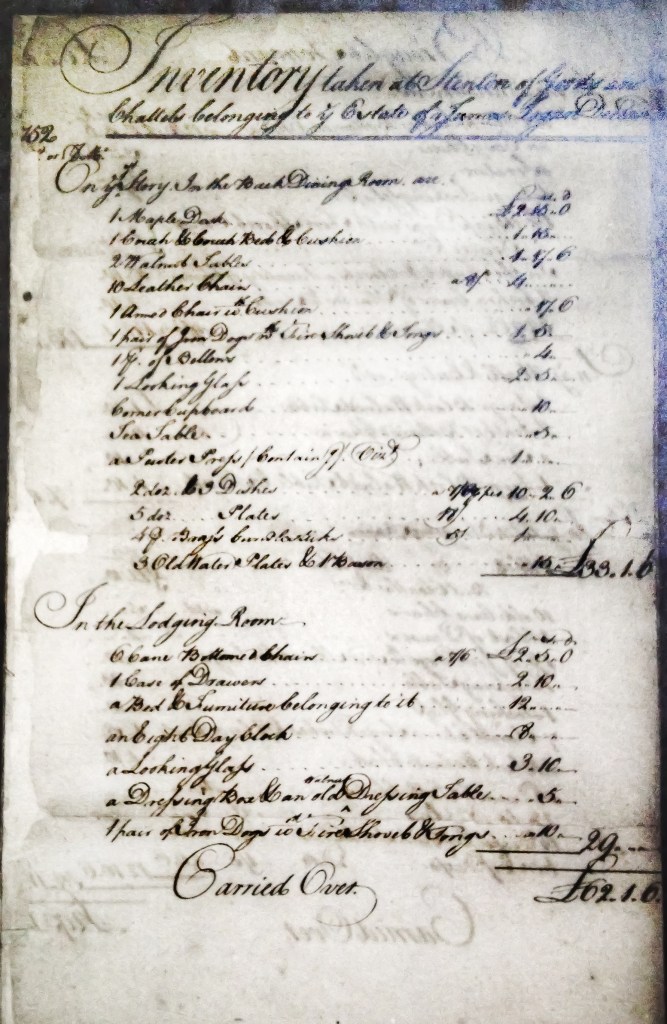 Inventory taken at Stenton of Goods and
Chattels belonging to ye Estate of James Logan
1752
On ye Story. In the Back Dining Room are
1 Maple Desk £2.15.0
1 Couch & Couch Bed & Cushion 1.15
2 Walnut Tables 1.17.6
10 Leather Chairs a 8/ 4
1 Armed Chair wth Cushion 17.6
1 pair of Iron Dogs wth Fire Shovel & Tongs 1.5
1 pr. of Bellows 4
1 Looking Glass 2.5
Corner Cupboard 10
Tea Table 5
a Pewter Press / Containg. 1
2 doz. & 3 Dishes 10.2.6
5 doz. Plates 4.10
4 pr. Brass Candlesticks a 5/ 1
3 Old Water Plates & 1 Bason 15 £33.1.6
In the Lodging Room
s. d.
6 Cane Bottomed Chairs a 7/6 £2.5.0
1 Case of Drawers 2.10
a Bed & Furniture belonging to it 12
an Eight Day Clock 8
a Looking Glass 3.10
a Dressing Box & an old walnut Dressing Table 5
1 pair of Iron Dogs wth Fire Shovel & Tongs 10 29
Carried Over £62.1.6